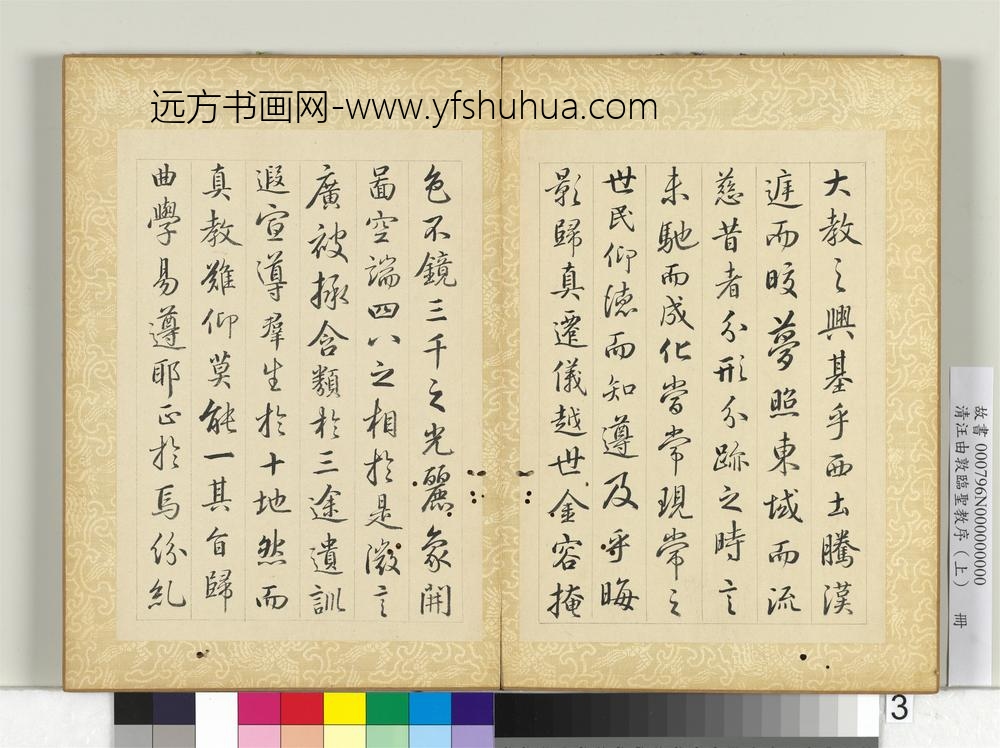 远方书画网-www.yfshuhua.com
大教之興基乎西土騰漢
遅而皎夢照東域而流
慈昔者分形分跡之時言
未馳而成化當常現常之
世民仰德而知遵及乎晦
影歸真遷儀越世金容掩
色不鏡三千之光麗象開
圖空端四八之相於是微言
廣被拯含類於三途遺訓
遐宣導羣生於十地然而
真教難仰莫能一其旨歸
曲學易遵耶正於焉紛糺
故書 000796N000000000
清汪由敦臨聖教序(上) 冊
3